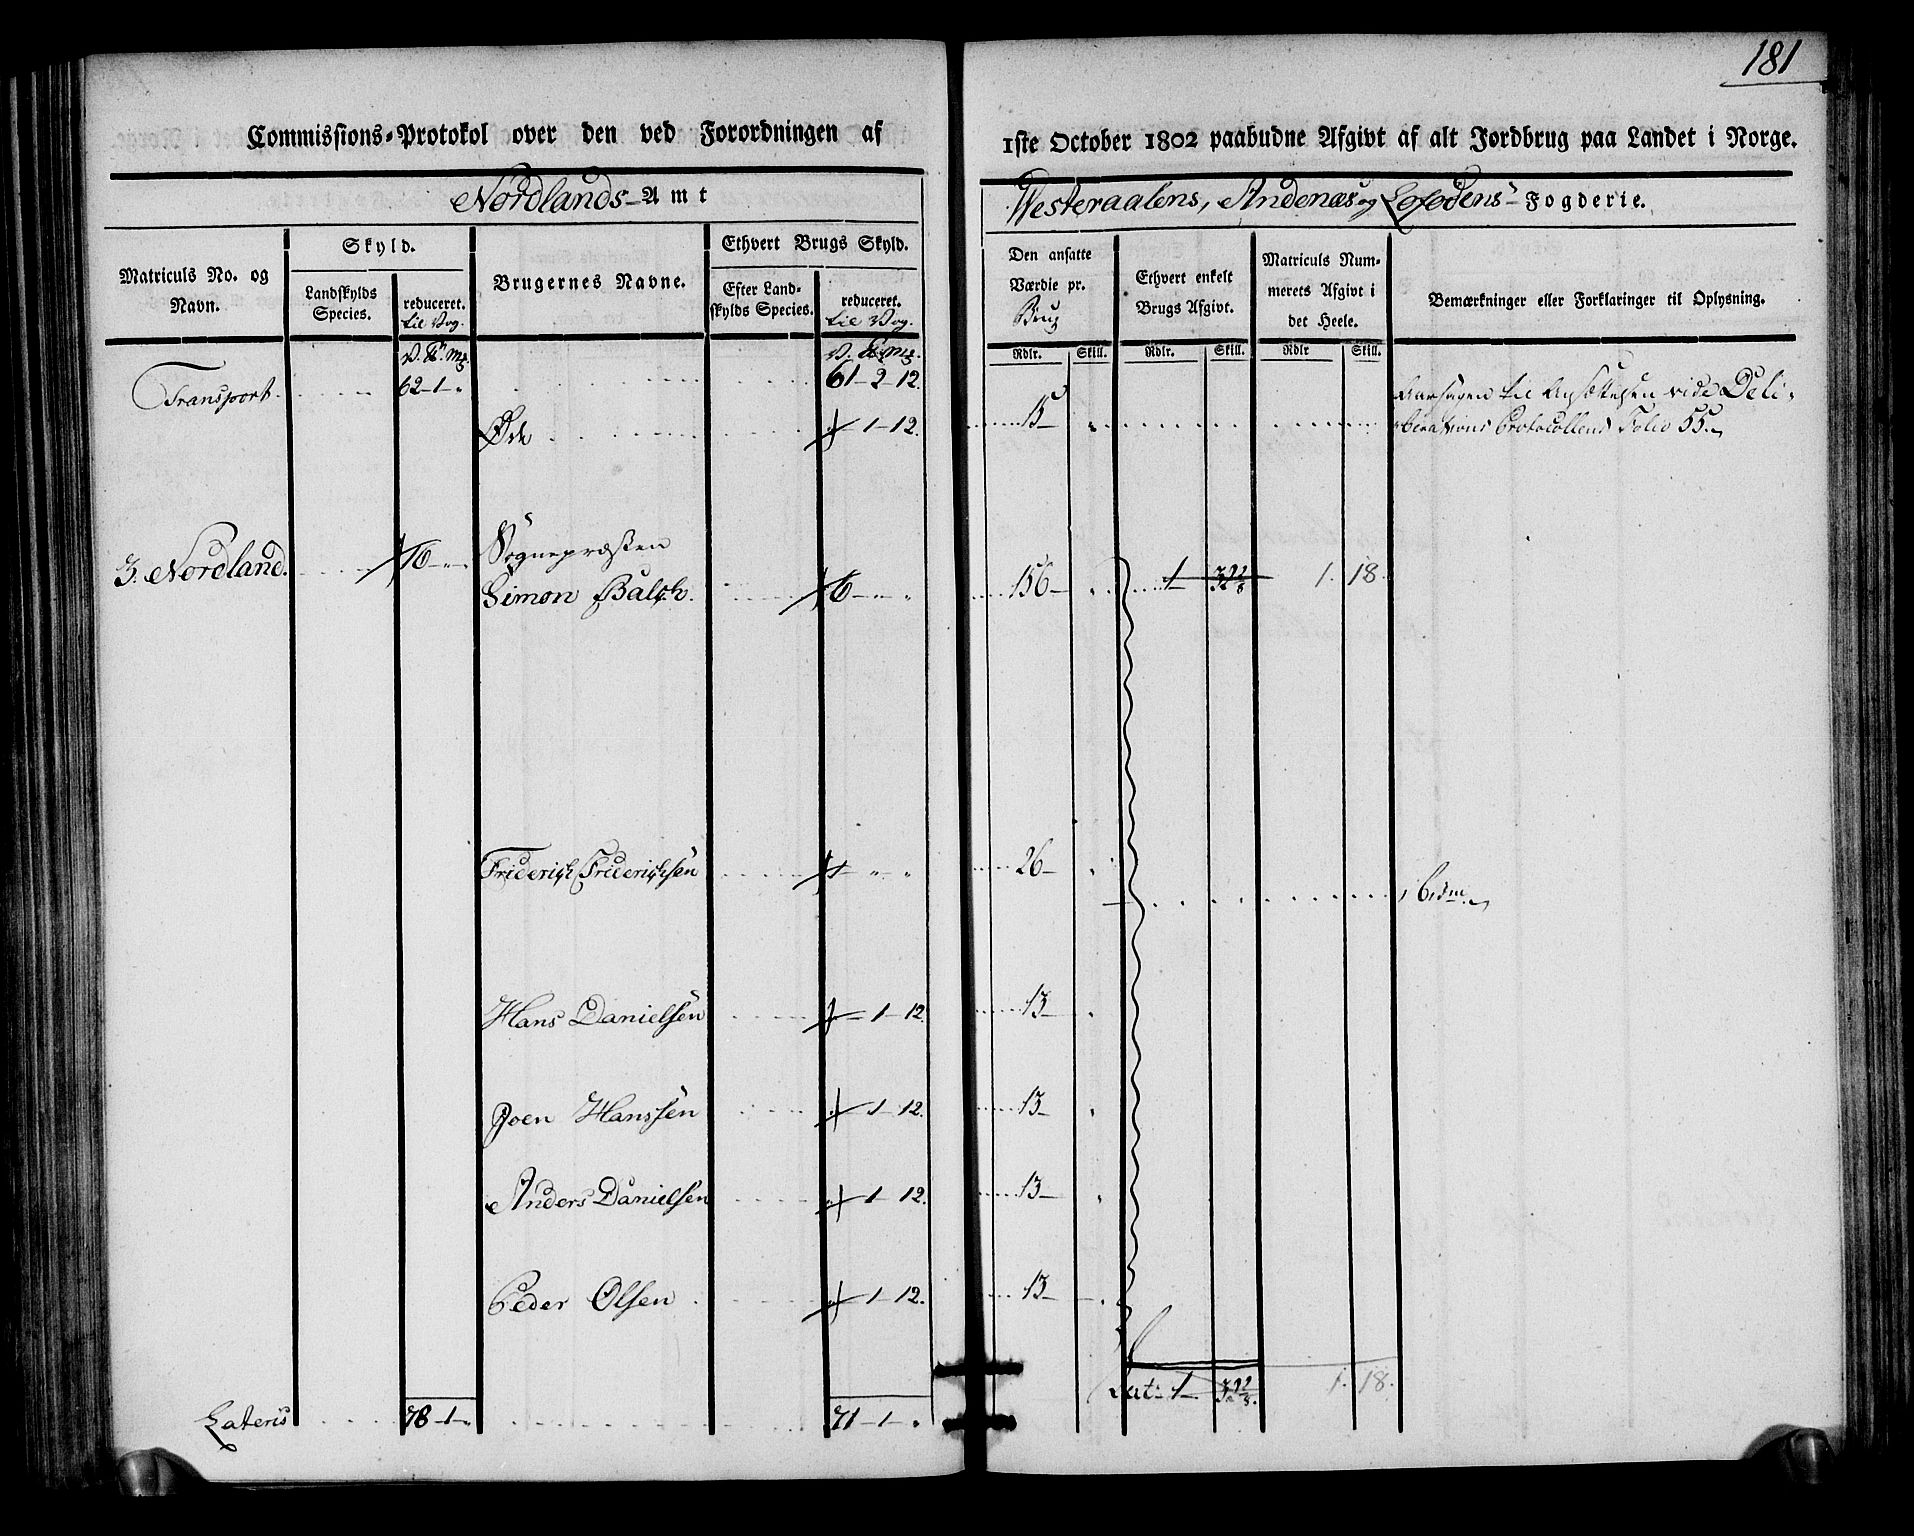 181
Commissions-Protokol over den ved Forordningen af
1ste October 1802 paabudne Afgivt af alt Jordbrug paa Landet i Norge.
Nordlands-Amt
Westeraalens, Andenæs og Lofodens-Fogderie.
Matriculs No. og Navn.
Skyld.
Landskylds Species.
reduceret. til Vog.
Brugernes Navne.
Ethvert Brugs Skyld.
Efter Landskylds Species.
reduceret. til Vog.
Den ansatte Værdie pr. Brug
Ethvert enkelt Brugs Afgivt.
Matriculs Nummerets Afgivt i det Heele.
Bemærkninger eller Forklaringer til Oplysning.
Rdlr. Skill. Rdlr. Skill. Rdlr Skill.
Transport. 62-1-" 61-2-12.
Øde 1-12. 15 Aarsagen til Ansættelsen vide Deli-
berations Protocollens Folio 55.
3. Nordland. Sognepræsten
Simon Balch. 6 156 1 1. 18.
Friderich Friderichsen 26 Idm.
Hans Danielsen 1-12. 13
Joen Hanssen 1-12. 13
Anders Danielsen 1-12. 13
Peder Olsen 1-12. 13
Lat: 1 1. 18.
Lateris 78-1-" 71-1-"